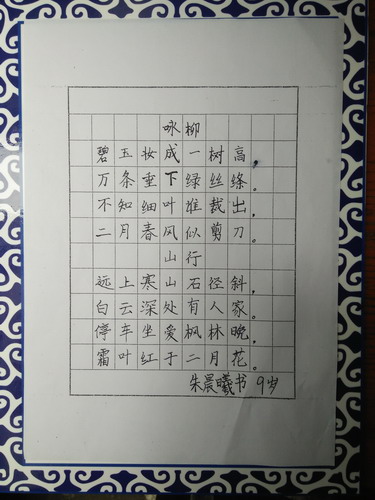 咏柳
碧玉妆成一树高，
万条垂下绿丝绦。
不知细叶谁裁出，
二月春风似剪刀。
山行
远上寒山石径斜，
白云深处有人家。
停车坐爱枫林晚，
霜叶红于二月花。
朱晨曦书 9岁